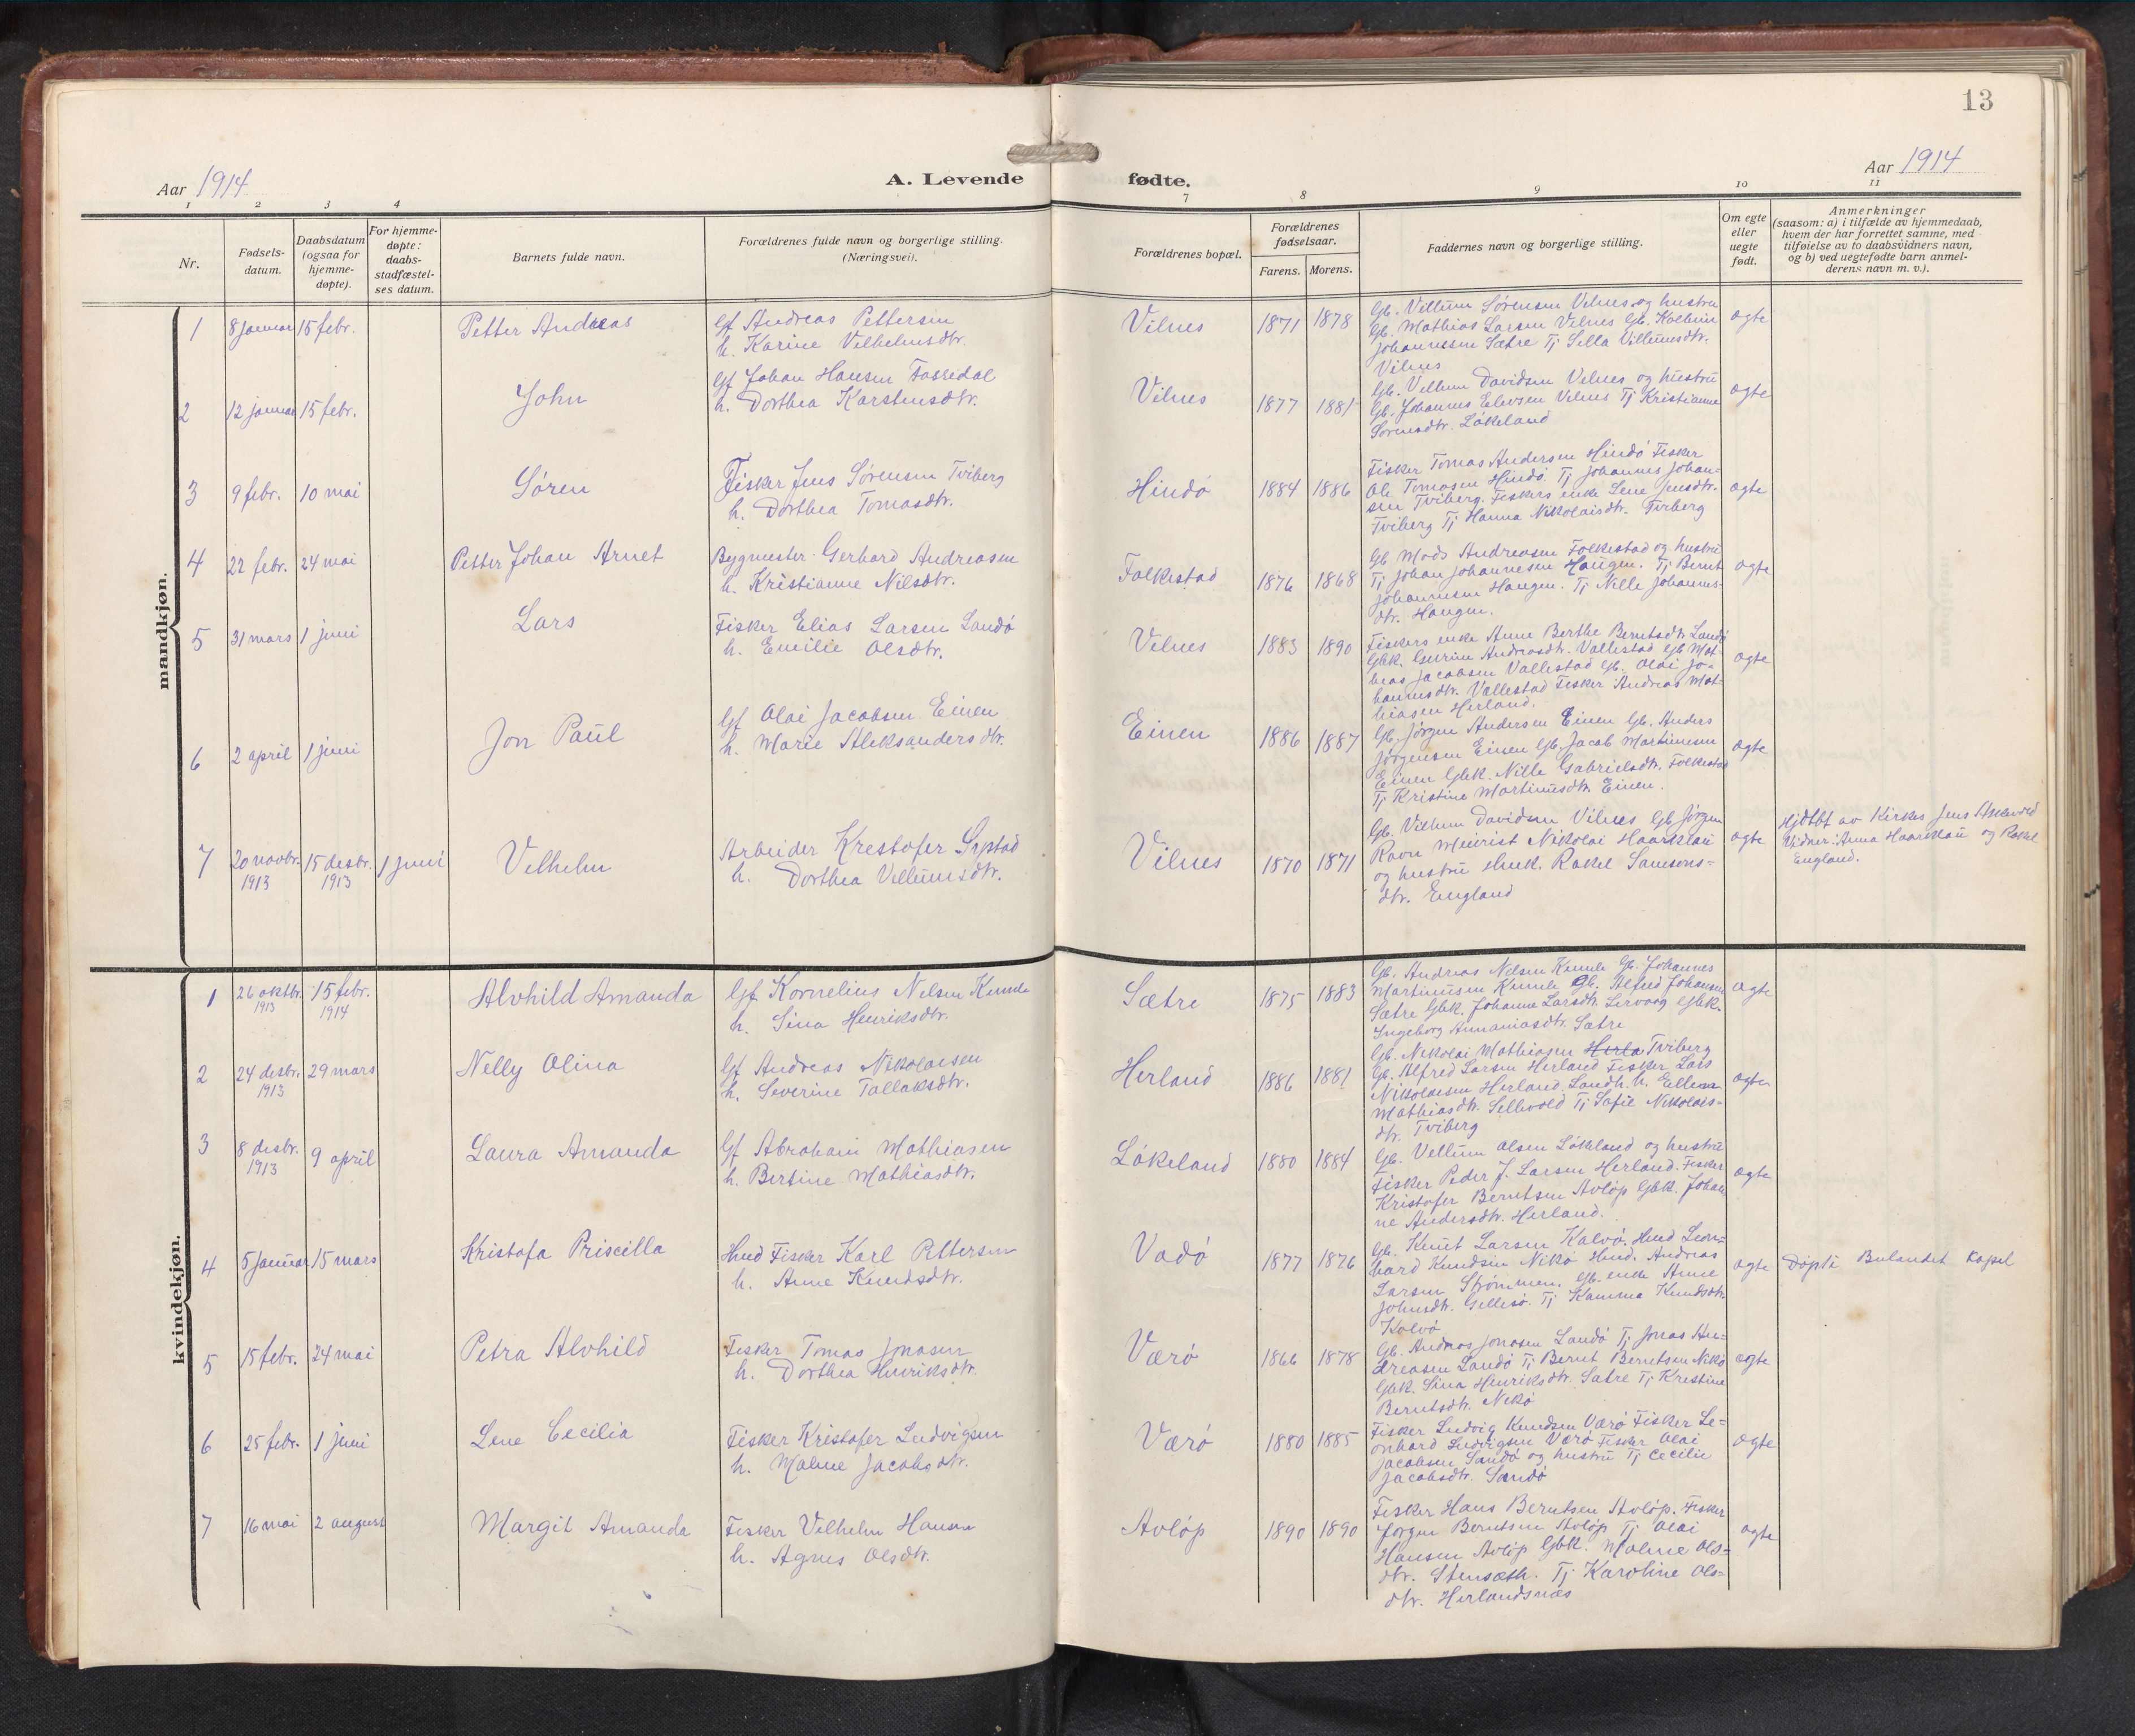 13
Aar 1914
A. Levende fødte.
Aar 1914
1 2 3 4 7 8 9 10 11
Nr.
Fødsels-
datum.
Daabsdatum
(ogsaa for
hjemme-
døpte).
For hjemme-
døpte:
daabs-
stadfæstel-
ses datum.
Barnets fulde navn.
Forældrenes fulde navn og borgerlige stilling.
(Næringsvei).
Forældrenes bopæl.
Forældrenes
fødselsaar.
Farens. Morens.
Faddernes navn og borgerlige stilling.
Om egte
eller
uegte
født.
Anmerkninger
(saasom: a) i tilfælde av hjemmedaab,
hvem der har forrettet samme, med
tilføielse av to daabsvidners navn,
og b) ved uegtefødte barn anmel-
derens navn m. v.).
mandkjøn.
1 8 januar 15 febr. Petter Andreas
Gf Andreas Pettersen
h. Karine Vilhelmsdtr.
Vilnes 1871 1878
Gb. Villum Sørensen Vilnes og hustru
Gb. Mathias Larsen Vilnes Gb. Kolbein
Johannesen Sætre Tj Sella Villumsdtr.
Vilnes
ægte
2 12 januar 15 febr. John
Gf Johan Hansen Fossedal
h. Dorthea Karstensdtr.
Vilnes 1877 1881
Gb. Villum Davidsen Vilnes og hustru
Gb. Johannes Elevsen Vilnes Tj Kristianne
Sørensdtr. Løkeland
ægte
3 9 febr. 10 mai Søren
Fisker Jens Sørensen Tviberg
h. Dorthea Tomasdtr.
Hindø 1884 1886
Fisker Tomas Andersen Hindø Fisker
Ole Tomasen Hindø. Tj Johannes Johan-
sen Tviberg. Fiskers enke Lene Jensdtr.
Tviberg Tj Hanna Nikolaisdtr. Tviberg
ægte
4 22 febr. 24 mai Petter Johan Arnet
Bygmester Gerhard Andreasen
h. Kristianne Nilsdtr.
Folkestad 1876 1868
Gb Mads Andreasen Folkestad og hustru
Tj Johan Johannesen Haugen. Tj Bernt
Johannesen Haugen. Tj Nille Johannes-
dtr. Haugen.
ægte
5 31 mars 1 juni Lars
Fisker Elias Larsen Landø
h. Emilie Olsdtr.
Vilnes 1883 1890
Fiskers enke Anne Berthe Berntsdtr Landø
Gbk. Gurine Andreasdtr. Vallestad Gb Mat-
hias Jacobsen Vallestad Gb. Olai Jo-
hannesdtr. Vallestad Fisker Andreas Mat-
hiasen Herland.
ægte
6 2 april 1 juni Jon Paul
Gf Olai Jacobsen Einen
h. Marie Aleksandersdtr.
Einen 1886 1887
Gb. Jørgen Andersen Einen Gb. Anders
Jørgensen Einen Gb. Jacob Martinusen
Einen Gbk. Nille Gabrielsdtr. Folkestad
Tj Kristine Martinusdtr. Einen.
ægte
7 20 novbr. 1913 15 desbr. 1913 1 juni Vilhelm
Arbeider Krestofer Systad
h. Dorthea Villumsdtr.
Vilnes 1870 1871
Gb. Vilhem Davidsen Vilnes Gb Jørgen
Ravn Meierist Nikolai Haarklau
og hustru Huk. Rakel Samsons-
dtr. England
ægte
Hjdøbt av Kirkes. Jens
Vidner: Anna Haarklau og Rakel
England.
kvindekjøn.
1 26 oktbr. 1913 15 febr. 1914 Alvhild Amanda
Gf Kornelius Nelsen Kumle
h. Sina Henriksdtr.
Sætre 1875 1883
Gb. Andreas Nelsen Kumle Gb. Johannes
Martinusen Kumle Gb. Alfred Johansen
Sætre Gbk. Johanne Larsdtr. Lervaag Gbk.
Ingeborg Annaniasdtr. Sætre
ægte
2 24 desbr. 1913 29 mars Nelly Olina
Gf Andreas Nikolaisen
h. Severine Tollaksdtr.
Herland 1886 1881
Gb. Nikolai Mathiasen Herla Tviberg
Gb. Alfred Larsen Herland Fisker Lars
Nikolaisen Herland. Landh. h. Ellen
Mathiasdtr. Sellevold Tj Sofie Nikolais-
dtr. Tviberg
ægte
3 8 desbr. 1913 9 april Laura Amanda
Gf Abraham Mathiasen
h. Bertine Mathiasdtr.
Løkeland 1880 1884
Gb. Vellum Olsen Løkeland og hustru
Fisker Peder J. Larsen Herland. Fisker
Kristofer Berntsen Avløp Gbk. Johan-
ne Andersdtr. Herland.
ægte
4 5 januar 15 mars Kristofa Priscilla
Hmd Fisker Karl Pettersen
h. Anne Knudsdtr.
Vadø 1877 1876
Gb. Knut Larsen Kalvø. Hmd Leon-
hard Knudsen Nikø Hmd. Andreas
Larsen Strømmen. Gb. enke Anne
Johnsdtr. Gellesø. Tj Kamma Knudsdtr.
Kalvø
ægte
Døpt i Bulandet Kapel
5 15 febr. 24 mai Petra Alvhild
Fisker Tomas Jonasen
h. Dorthea Henriksdtr.
Værø 1866 1878
Gb. Andreas Jonasen Landø Tj Jonas An-
dreasen Landø Tj Bernt Berntsen Nikø
Gbk. Sina Henriksdtr. Sætre Tj Kristine
Berntsdtr. Nikø
ægte
6 25 febr. 1 juni Lene Cecilia
Fisker Kristofer Ludvigsen
h. Malene Jacobsdtr.
Værø 1880 1885
Fisker Ludvig Knudsen Værø Fisker Le-
onhard Ludvigsen Værø Fisker Olai
Jacobsen Sandø og hustru Tj Cecilie
Jacobsdtr. Sandø
ægte
7 16 mai 2 august Margit Amanda
Fisker Vilhelm Hansen
h. Agnes Olsdtr.
Avløp 1890 1890
Fisker Hans Berntsen Avløp. Fisker
Jørgen Berntsen Avløp Tj Olai
Hansen Avløp Gbk. Malene Ols-
dtr. Stensæth. Tj Karoline Ols-
dtr. Herlandsnæs
ægte